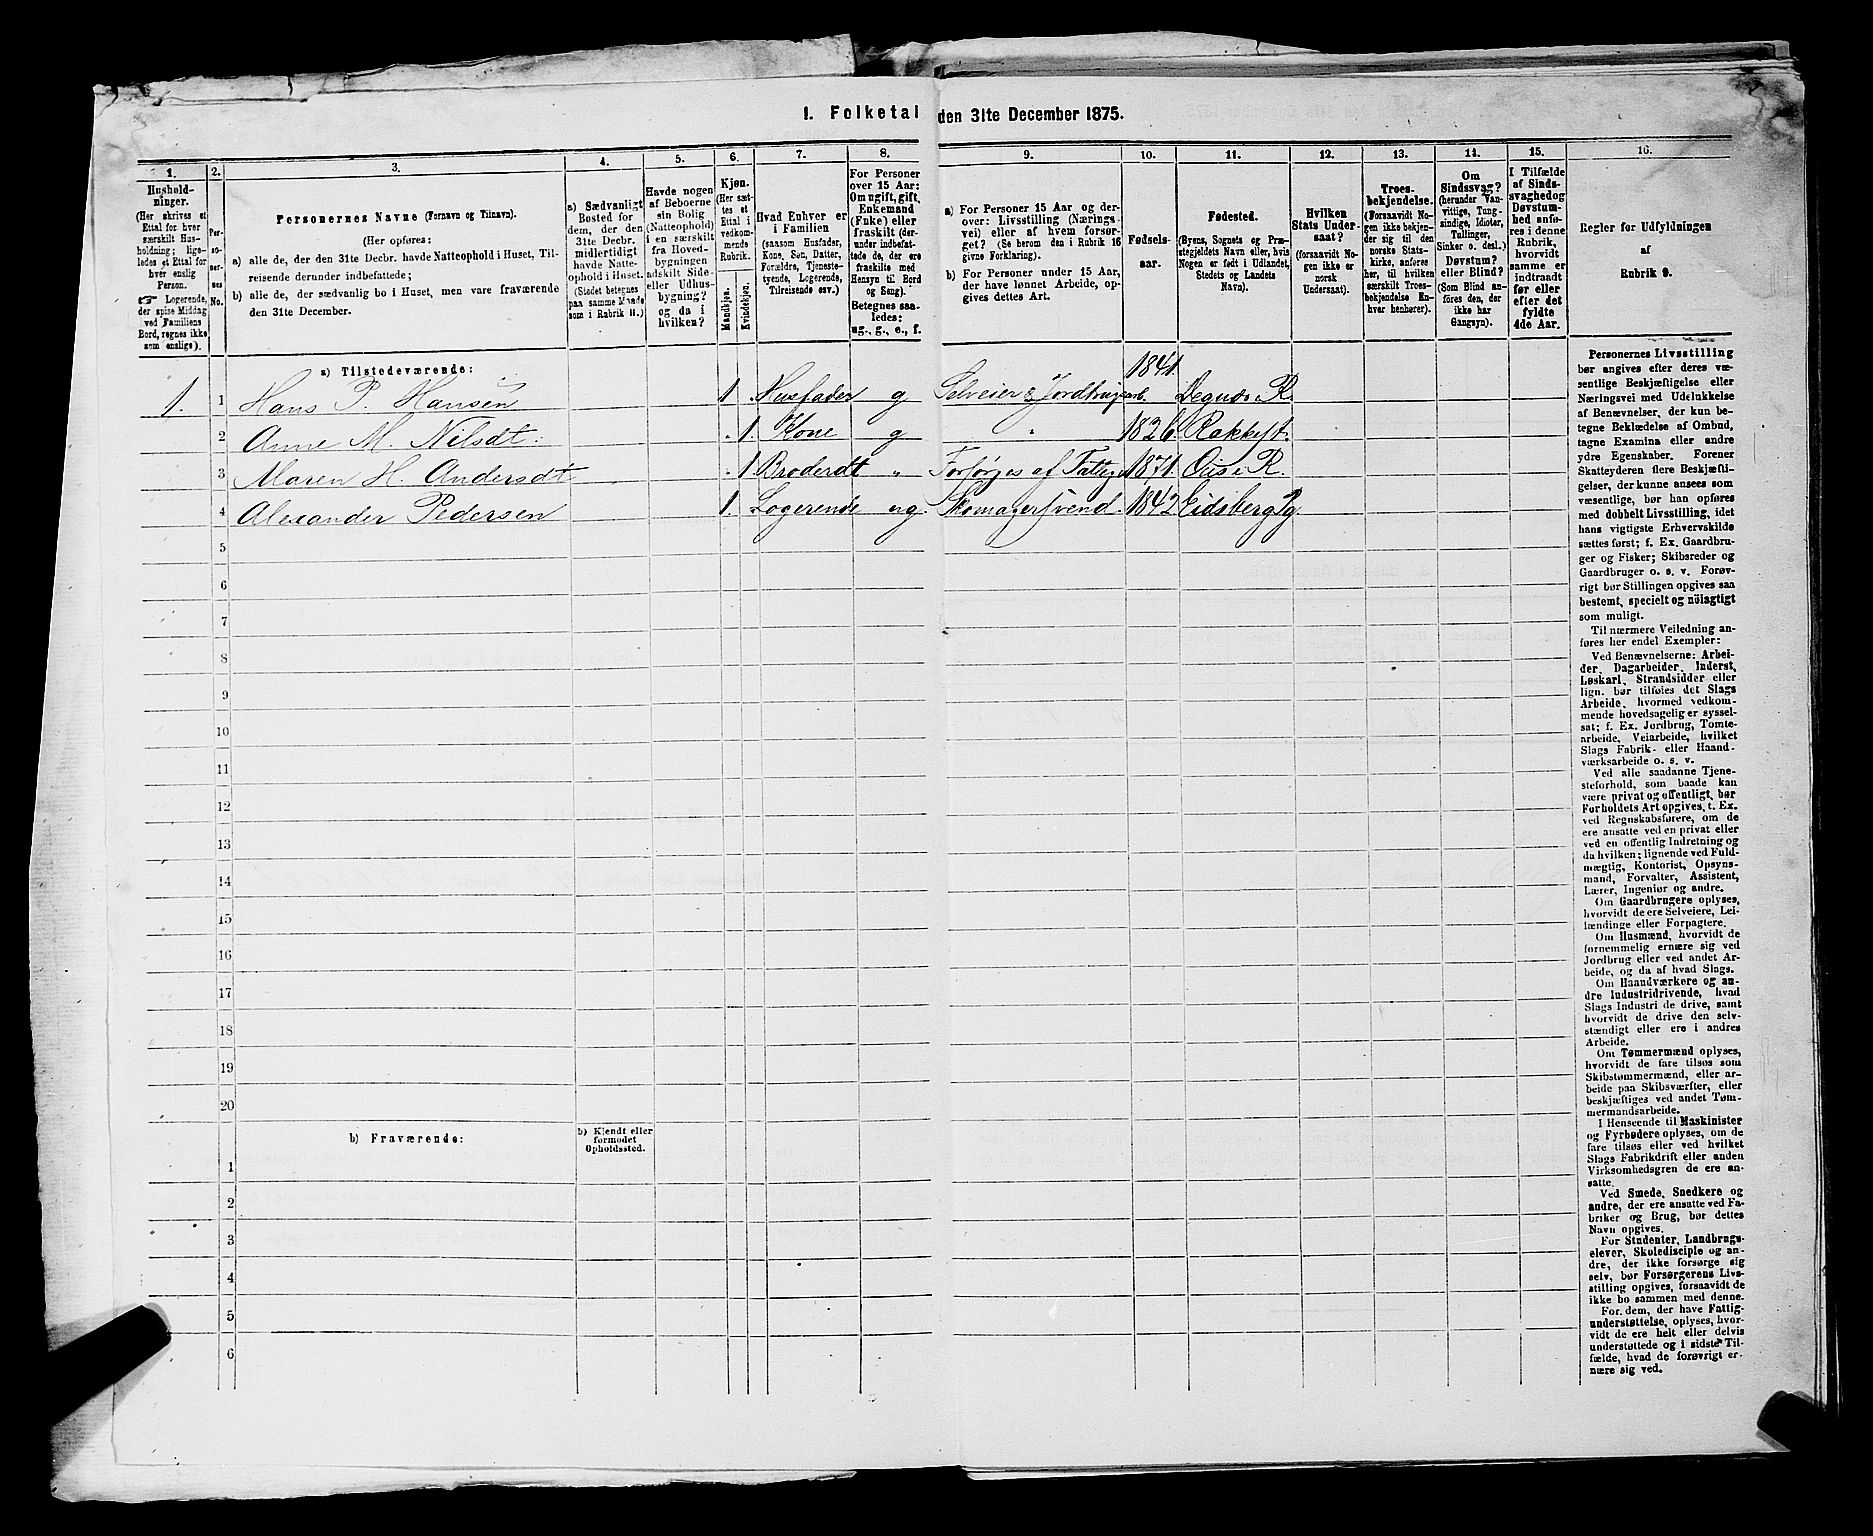 I. Folketal den 31te December 1875.
1. 2. 3. 4. 5. 6. 7. 8. 9. 10. 11. 12. 13. 14. 15. 16.
Hushold-
ninger.
(Her skrives et
Ettal for hver
særskilt Hus-
holdning; lige-
ledes et Ettal for
hver enslig
Person.
☞ Logerende,
der spise Middag
ved Familiens
Bord, regnes ikke
som enslige).
Per-
so-
ner-
nes
No.
Personernes Navne (Fornavn og Tilnavn).
(Her opføres:
a) alle de, der den 31te Decbr. havde Natteophold i Huset, Til-
reisende derunder indbefattede;
b) alle de, der sædvanlig bo i Huset, men vare fraværende
den 31te December.
a) Sædvanligt
Bosted for
dem, der den
31te Decbr.
midlertidigt
havde Natte-
ophold i Huset.
(Stedet betegnes
paa samme Maade
som i Rubrik 11.)
Havde nogen
af Beboerne
sin Bolig
(Natteophold)
i en særskilt
fra Hoved-
bygningen
adskilt Side-
eller Udhus-
bygning?
og da i
hvilken?
Kjøn.
(Her sæt-
tes et
Ettal i
vedkom-
mende
Rubrik.
Mandkjøn.
Kvindekjøn.
Hvad Enhver er
i Familien
(saasom Husfader,
Kone, Søn, Datter,
Forældre, Tjeneste-
tyende, Logerende,
Tilreisende osv.)
For Personer
over 15 Aar:
Om ugift, gift,
Enkemand
(Enke) eller
fraskilt (der-
under indbefat-
tede de, der ere
fraskilte med
Hensyn til Bord
og Seng).
Betegnes saa-
ledes:
ug., g., e., f.
a) For Personer 15 Aar og der-
over: Livsstilling (Nærings-
vei) eller af hvem forsør-
get? (Se herom den i Rubrik 16
givne Forklaring).
b) For Personer under 15 Aar,
der have lønnet Arbeide, op-
gives dettes Art.
Fødsels-
aar.
Fødested.
(Byens, Sognets og Præ-
stegjeldets Navn eller, hvis
Nogen er født i Udlandet,
Stedets og Landets
Navn).
Hvilken
Stats Under-
saat?
(forsaavidt No-
gen ikke er
norsk
Undersaat).
Troes-
bekjendelse.
(Forsaavidt No-
gen ikke bekjen-
der sig til den
norske Stats-
kirke, anføres
her, til hvilken
særskilt Troes-
bekjendelse En-
hver henhører).
Om
Sindssvag?
(herunder Van-
vittige, Tung-
sindige, Idioter,
Tullinger,
Sinker o. desl.)
Døvstum?
eller Blind?
(Som Blind an-
føres den, der
ikke har
Gangsyn).
I Tilfælde
af Sinds-
svaghed og
Døvstum-
hed anfø-
res i denne
Rubrik,
hvorvidt
samme er
indtraadt
før eller
efter det
fyldte
4de Aar.
Regler for Udfyldningen
af
Rubrik 9.
a) Tilstedeværende:
1. 1 Hans P. Hansen 1 Husfader g Selveier & Jordbrugsarb. 1841. Degnæs R.
2 Anne M. Nilsdt. " 1. Kone g " 1826 Rakkest.
3 Maren H. Andersdt " 1 Broderdt " Forsørges af 1871. R.
4 Alexander Pedersen 1. Logerende ug Skomagersvend. 1842 Eidsberg Pg
5
6
7
8
9
10
11
12
13
14
15
16
17
18
19
20
b) Fraværende:
b) Kjendt eller
formodet
Opholdssted.
1
2
3
4
5
6
Personernes Livsstilling
bør angives efter deres væ-
sentlige Beskjæftigelse eller
Næringsvei med Udelukkelse
af Benævnelser, der kun be-
tegne Beklædelse af Ombud,
tagne Examina eller andre
ydre Egenskaber. Forener
Skatteyderen flere Beskjæfti-
gelser, der kunne ansees som
væsentlige, bør han opføres
med dobbelt Livsstilling, idet
hans vigtigste Erhvervskilde
sættes først; f. Ex. Gaardbru-
ger og Fisker; Skibsreder og
Gaardbruger o. s. v. Forøv-
rigt bør Stillingen opgives saa
bestemt, specielt og nöiagtigt
som muligt.
Til nærmere Veiledning an-
føres her endel Exempler:
Ved Benævnelserne: Arbei-
der, Dagarbeider, Inderst,
Løskarl, Strandsidder eller
lign. bør tilføies det Slags
Arbeide, hvormed vedkom-
mende hovedsagelig er syssel-
sat; f. Ex. Jordbrug, Tomte-
arbeide, Veiarbeide, hvilket
Slags Fabrik- eller Haand-
værksarbeide o. s. v.
Ved alle saadanne Tjene-
steforhold, som baade kan
være privat og offentligt, bør
Forholdets Art opgives, t. Ex.
ved Regnskabsførere, om de
ere ansatte ved en privat eller
ved en offentlig Indretning og
da hvilken; lignende ved Fuld-
mægtig, Kontorist, Opsyns-
mand, Forvalter, Assistent,
Lærer, Ingeniør og andre.
Om Gaardbrugere oplyses,
hvorvidt de ere Selveiere, Lei-
lændinge eller Forpagtere.
Om Husmænd, hvorvidt de
fornemmelig ernære sig ved
Jordbrug eller ved andet Ar-
beide, og da af hvad Slags.
Om Haandværkere og an-
dre Industridrivende, hvad
Slags Industri de drive, samt
hvorvidt de drive den selv-
stændigt eller ere i andres
Arbeide.
Om Tømmermænd oplyses,
hvorvidt de fare tilsøs som
Skibstømmermænd, eller ar-
beide paa Skibsværfter, eller
beskjæftiges ved andet Tøm-
mermandsarbeide.
I Henseende til Maskinister
og Fyrbødere oplyses, om de
fare tilsøs eller ved hvilket
Slags Fabrikdrift eller anden
Virksomhedsgren de ere an-
satte.
Ved Smede, Snedkere og
andre, der ere ansatte ved Fa-
briker og Brug, bør dettes
Navn opgives.
For Studenter, Landbrugs-
elever, Skoledisciple og an-
dre, der ikke forsørge sig
selv, bør Forsørgerens Livs-
stilling opgives, forsaavidt de
ikke bo sammen med denne.
For dem, der have Fattig-
understøttelse, oplyses, hvor-
vidt de ere helt eller delvis
understøttede og i sidste Til-
fælde, hvad de forøvrigt er-
nære sig ved.